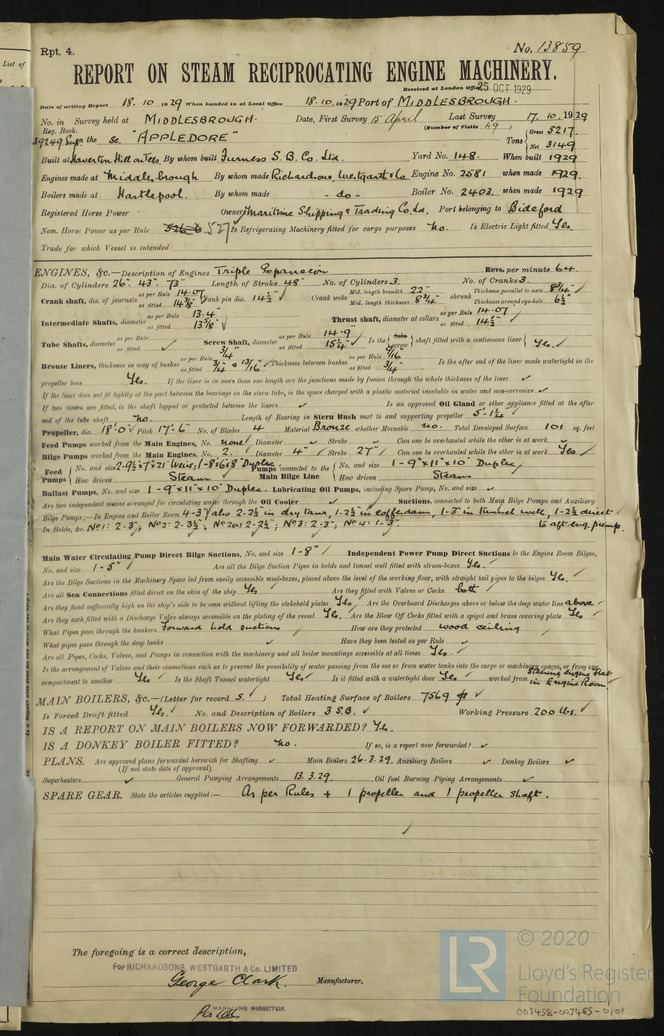 List of
Rpt. 4.
No. 13859
REPORT ON STEAM RECIPROCATING ENGINE MACHINERY.
Received at London Office 25 OCT 1929
Date of writing Report 18.10.1929 When handed in at Local Office 18.10.1929 Port of MIDDLESBROUGH.
No. in Survey held at MIDDLESBROUGH Date, First Survey 15 April Last Survey 17.10.1929
Reg. Book. (Number of Visits 49)
39249 Supp. the Sc. "APPLEDORE" Tons Gross 5217. Net 3149
Built at Haverton Hill on Tees By whom built Furness S.B. Co. Ltd. Yard No. 148. When built 1929
Engines made at Middlesbrough By whom made Richardsons, Westgarth & Co Engine No. 2581 when made 1929.
Boilers made at Hartlepool. By whom made - do - Boiler No. 2403. when made 1929
Registered Horse Power Owners Maritime Shipping & Trading Co. Ld. Port belonging to Bideford
Nom. Horse Power as per Rule 527 Is Refrigerating Machinery fitted for cargo purposes No. Is Electric Light fitted Yes.
Trade for which Vessel is intended
ENGINES, &c.—Description of Engines Triple Expansion Revs. per minute 64.
Dia. of Cylinders 26" 43" 73" Length of Stroke 48" No. of Cylinders 3. No. of Cranks 3.
Crank shaft, dia. of journals as per Rule 14.07 as fitted 14 3/8" Crank pin dia. 14 1/2" Crank webs Mid. length breadth 22" Mid. length thickness 8 3/4" shrunk Thickness parallel to axis 8 3/4" Thickness around eye-hole 6 1/2"
Intermediate Shafts, diameter as per Rule 13.4 as fitted 13 5/8" Thrust shaft, diameter at collars as per Rule 14.07 as fitted 14 1/2"
Tube Shafts, diameter as per Rule as fitted Screw Shaft, diameter as per Rule 14.9 as fitted 15 1/4" Is the tube screw shaft fitted with a continuous liner Yes.
Bronze Liners, thickness in way of bushes as per Rule 3/4 as fitted 3/4 & 13/16 Thickness between bushes as per Rule 9/16 as fitted 3/4 Is the after end of the liner made watertight in the
propeller boss Yes. If the liner is in more than one length are the junctions made by fusion through the whole thickness of the liner
If the liner does not fit tightly at the part between the bearings in the stern tube, is the space charged with a plastic material insoluble in water and non-corrosive
If two liners are fitted, is the shaft lapped or protected between the liners Is an approved Oil Gland or other appliance fitted at the after
end of the tube shaft No. Length of Bearing in Stern Bush next to and supporting propeller
Propeller, dia. 18'-0" Pitch 17'-6" No. of Blades 4 Material Bronze whether Movable No. Total Developed Surface 101 sq. feet
Feed Pumps worked from the Main Engines, No. None Diameter Stroke Can one be overhauled while the other is at work
Bilge Pumps worked from the Main Engines, No. 2. Diameter 4" Stroke 27" Can one be overhauled while the other is at work Yes
Feed Pumps No. and size 2-9 1/2" x 7" x 21" Weirs; 1-8"x6"x8" Duplex. How driven Steam Pumps connected to the Main Bilge Line No. and size 1-9"x11"x10" Duplex How driven Steam
Ballast Pumps, No. and size 1-9"x11"x10" Duplex. Lubricating Oil Pumps, including Spare Pump, No. and size
Are two independent means arranged for circulating water through the Oil Cooler Suctions, connected to both Main Bilge Pumps and Auxiliary
Bilge Pumps;—In Engine and Boiler Room 4-3" also 2-2 1/2" in dry tank, 1-2 1/2" in cofferdam, 1-3" in tunnel well, 1-2 1/2" direct
In Holds, &c. No 1: 2-3"; No 2: 2-3 1/2"; 2-2 1/2"; No 3: 2-3"; No 4: 1-3" to aft eng. pump.
Main Water Circulating Pump Direct Bilge Suctions, No. and size 1-8" Independent Power Pump Direct Suctions to the Engine Room Bilges,
No. and size 1-5" Are all the Bilge Suction Pipes in holds and tunnel well fitted with strum-boxes Yes.
Are the Bilge Suctions in the Machinery Space led from easily accessible mud-boxes, placed above the level of the working floor, with straight tail pipes to the bilges Yes.
Are all Sea Connections fitted direct on the skin of the ship Yes Are they fitted with Valves or Cocks both
Are they fixed sufficiently high on the ship's side to be seen without lifting the stokehold plates Yes Are the Overboard Discharges above or below the deep water line above
Are they each fitted with a Discharge Valve always accessible on the plating of the vessel Yes. Are the Blow Off Cocks fitted with a spigot and brass covering plate Yes
What Pipes pass through the bunkers Forward hold suctions How are they protected wood ceiling
What pipes pass through the deep tanks Have they been tested as per Rule
Are all Pipes, Cocks, Valves, and Pumps in connection with the machinery and all boiler mountings accessible at all times Yes.
Is the arrangement of Valves and their connections such as to prevent the possibility of water passing from the sea or from water tanks into the cargo or machinery spaces, or from one
compartment to another Yes Is the Shaft Tunnel watertight Yes Is it fitted with a watertight door Yes worked from Starting engine flat in Engine Room
MAIN BOILERS, &c.—(Letter for record S.) Total Heating Surface of Boilers 7569
Is Forced Draft fitted Yes. No. and Description of Boilers 3 S.B. Working Pressure 200 lbs.
IS A REPORT ON MAIN BOILERS NOW FORWARDED? Yes.
IS A DONKEY BOILER FITTED? No. If so, is a report now forwarded?
PLANS. Are approved plans forwarded herewith for Shafting Main Boilers 26.3.29. Auxiliary Boilers Donkey Boilers
(If not state date of approval)
Superheaters General Pumping Arrangements 13.3.29. Oil fuel Burning Piping Arrangements
SPARE GEAR. State the articles supplied:— As per Rules + 1 propeller and 1 propeller shaft.
The foregoing is a correct description,
For RICHARDSONS, WESTGARTH & Co. LIMITED
George Clark. Manufacturer.
MANAGING DIRECTOR.
LR © 2020
Lloyd's Register
Foundation
003458-003465-0101